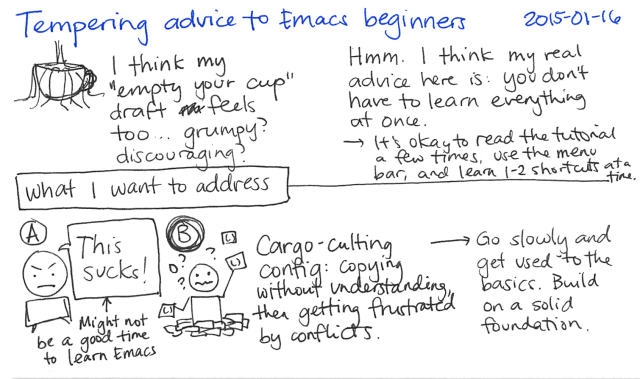 Tempering advice to Emacs beginners 2015-01-16
I think my
"empty your cup"
draft feels
too... grumpy?
discouraging?
Hmm. I think my real
advice here is: you don't
have to learn everything
at once.
→ It's okay to read the tutorial
a few times, use the menu
bar, and learn 1-2 shortcuts at a
time.
What I want to address
A
This
sucks!
Might not
be a good time
to learn Emacs
B
Cargo-culting
config: copying
without understanding,
then getting frustrated
by conflicts.
→ Go slowly and
get used to the
basics. Build
on a solid
foundation.